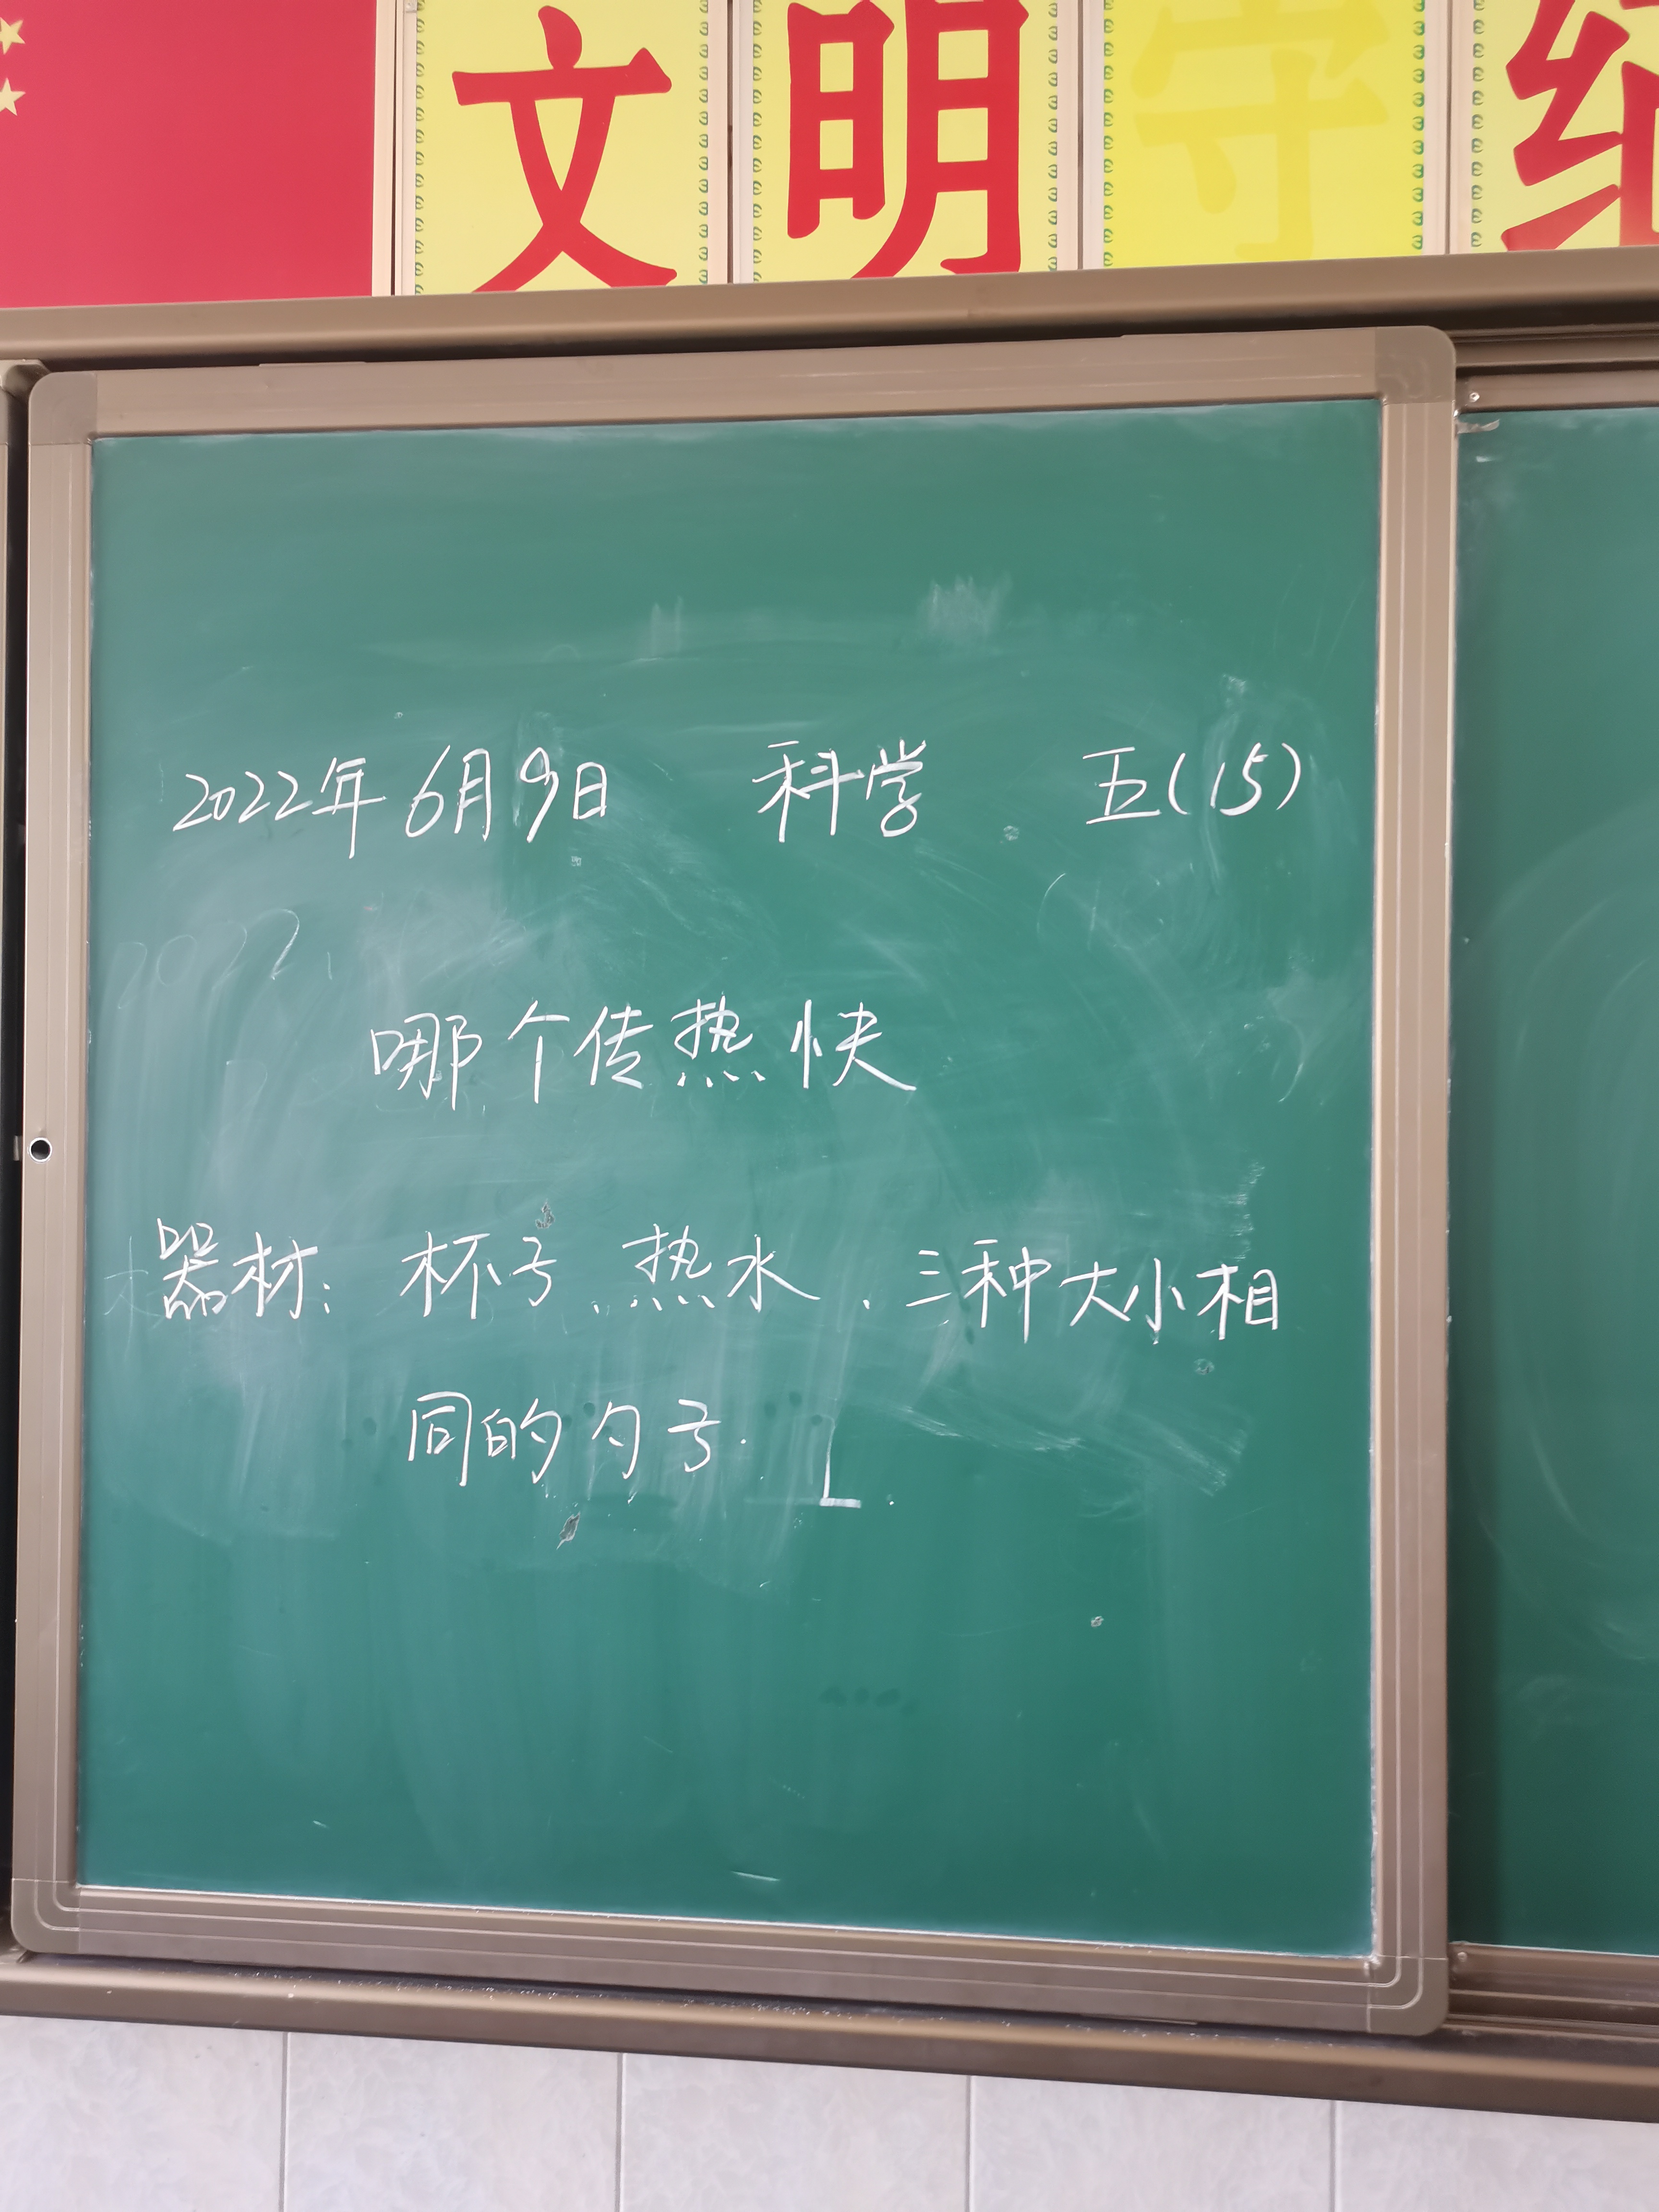 文明守纪
2022年6月9日 科学 五(15)
2022.
哪个传热快
器材：杯子、热水、三种大小相
同的勺子.